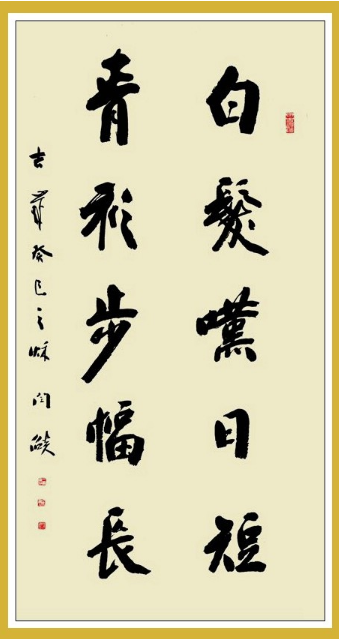 白髮嘆日短
青衫步幅長
癸巳之秋